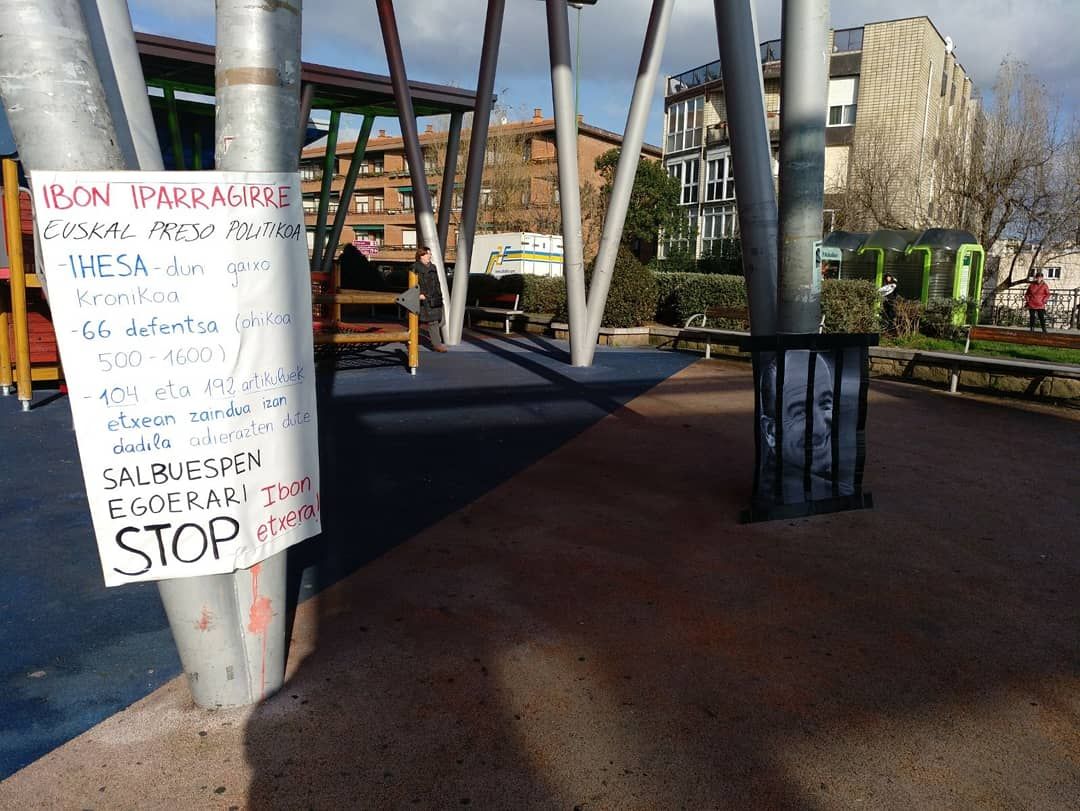 IBON IPARRAGIRRE
EUSKAL PRESO POLITIKOA
- IHESA - dun gaixo
Kronikoa
- 66 defentsa (ohikoa
500 - 1600)
- 104 eta 192 artikuluek
etxean zaindua izan
dadila adierazten dute
SALBUESPEN
EGOERARI
STOP
Ibon
etxera!